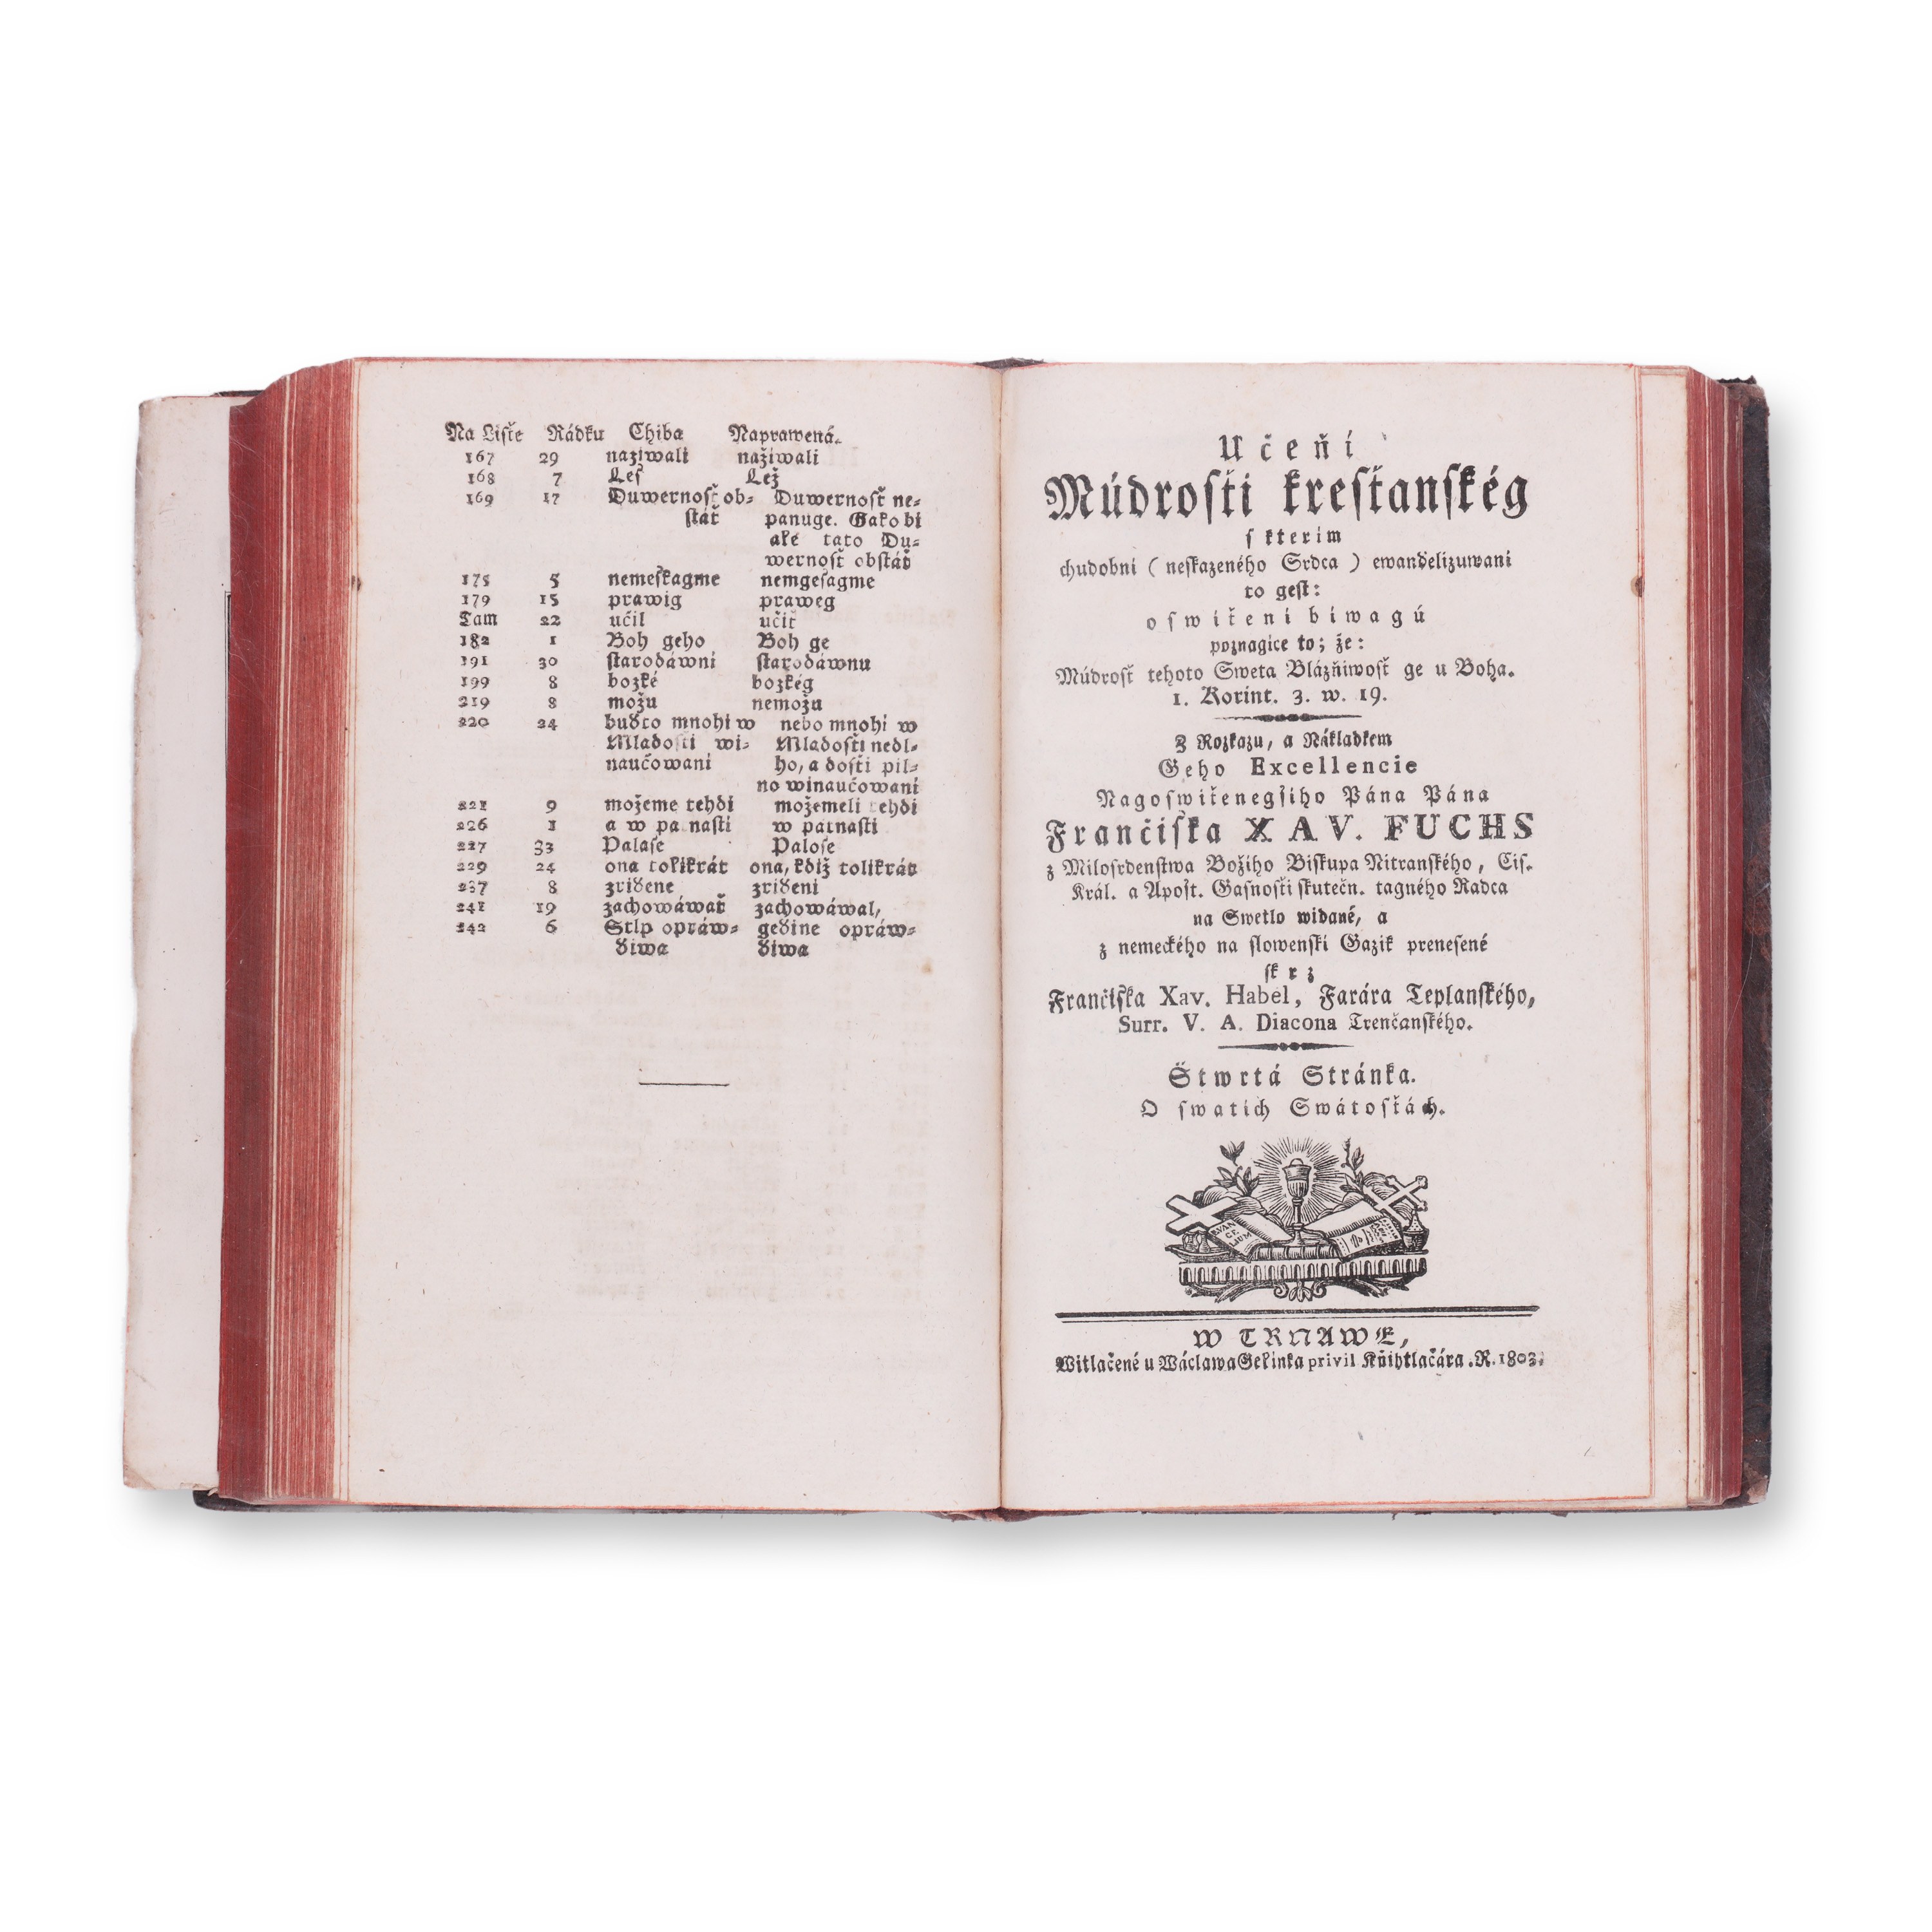 Na Liſťe Rádku Chiba Naprawená.
167 29 naziwali nažiwali
168 7 Leſ Lež
169 17 Duwernoſť ob- Duwernoſť ne-
ſtáť panuge. Gako bi
ale tato Du-
wernoſť obſtáť
175 5 nemeſkagme nemgeſagme
179 15 prawig praweg
Tam 22 učil učiť
182 1 Boh geho Boh ge
191 30 ſtarodáwni ſtarodáwnu
199 8 bozké bozkég
219 8 možu nemožu
220 24 buďto mnohi w nebo mnohí w
Mladoſti wi- Mladoſti nedl-
naučowani ho, a doſti pil-
no winaučowaní
221 9 možeme tehdi možemeli tehdi
226 1 a w patnaſti w patnaſti
227 33 Palaſe Paloſe
229 24 ona tolikrát ona, kdiž tolikrát
237 8 zriďene zriďeni
241 19 zachowáwať zachowáwal,
242 6 Stlp opráw- geďine opráw-
ďiwa ďiwa
Učeňí
Múdroſťi kreſťanſkég
ſ kterim
chudobni ( neſkazeného Srdca ) ewanďelizuwani
to geſt:
oſwíťení biwagú
poznagíce to; že:
Múdroſť tehoto Sweta Blázňiwoſť ge u Boha.
1. Korint. 3. w. 19.
Z Rozkazu, a Nákladkem
Geho Excellencie
Nagoſwíťenegſiho Pána Pána
Frančiſka XAV. FUCHS
z Miloſrdenſtwa Božiho Biſkupa Nitranſkého, Ciſ.
Král. a Apoſt. Gaſnoſťi ſkutečn. tagného Radca
na Swetlo widané, a
z nemeckého na ſlowenſki Gazik preneſené
ſkrz
Frančiſka Xav. Habel, Farára Teplanſkého,
Surr. V. A. Diacona Trenčanſkého.
Štwrtá Stránka.
O ſwatich Swátoſťách.
EVAN
GE
LIUM
W TRNAWE,
Witlačené u Wáclawa Gelinka privil Kňihtlačára. R. 1803.